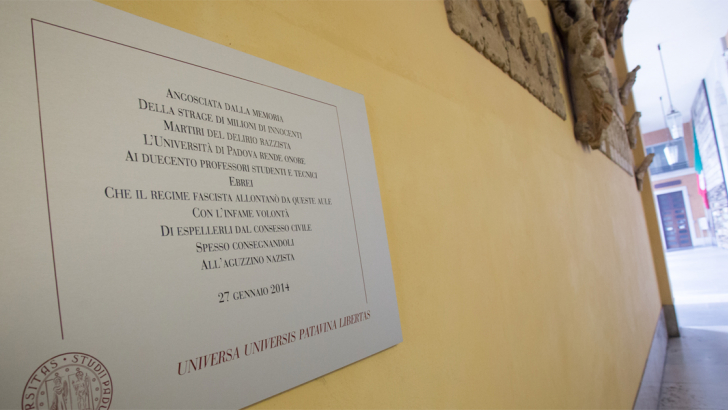 Angosciata dalla memoria
Della strage di milioni di innocenti
Martiri del delirio razzista
L'Università di Padova rende onore
Ai duecento professori studenti e tecnici
Ebrei
Che il regime fascista allontanò da queste aule
Con l'infame volontà
Di espellerli dal consesso civile
Spesso consegnandoli
All'aguzzino nazista
27 gennaio 2014
UNIVERSA UNIVERSIS PATAVINA LIBERTAS
VERSITAS · STUDII PADU